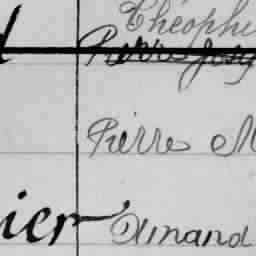 Théophi
Pierre Josep
Pierre M
ier Amand